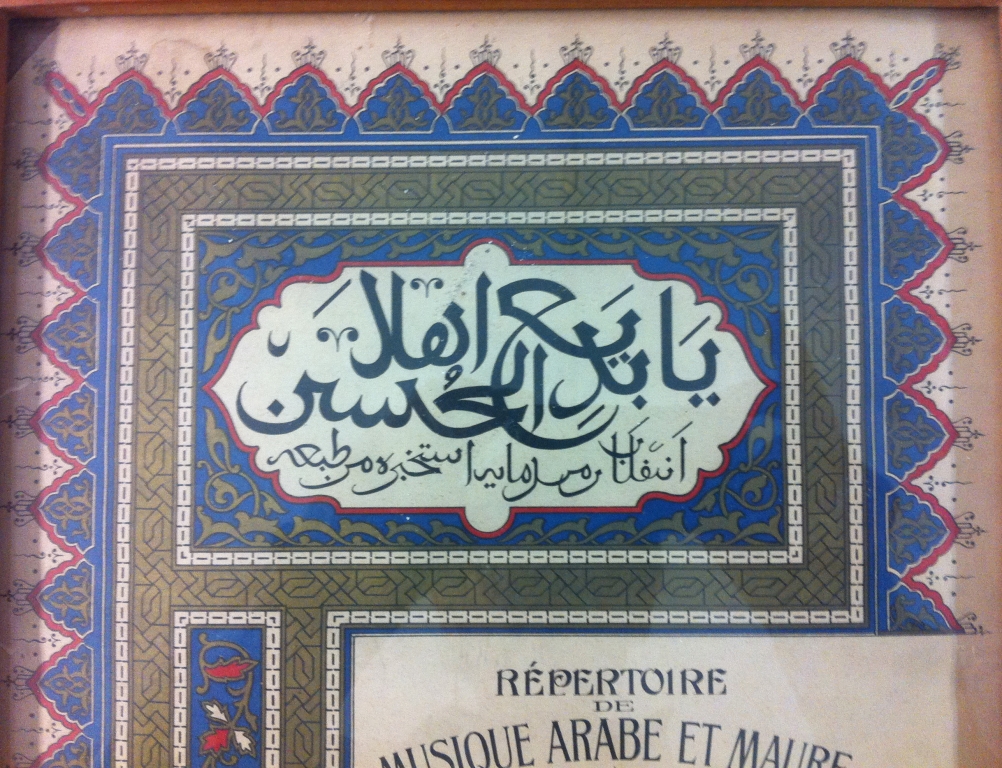 يَا بَدِيع الحُسن اهلا
انقلاب من رمل مايه استخبره من طبعه
RÉPERTOIRE
DE
MUSIQUE ARABE ET MAURE